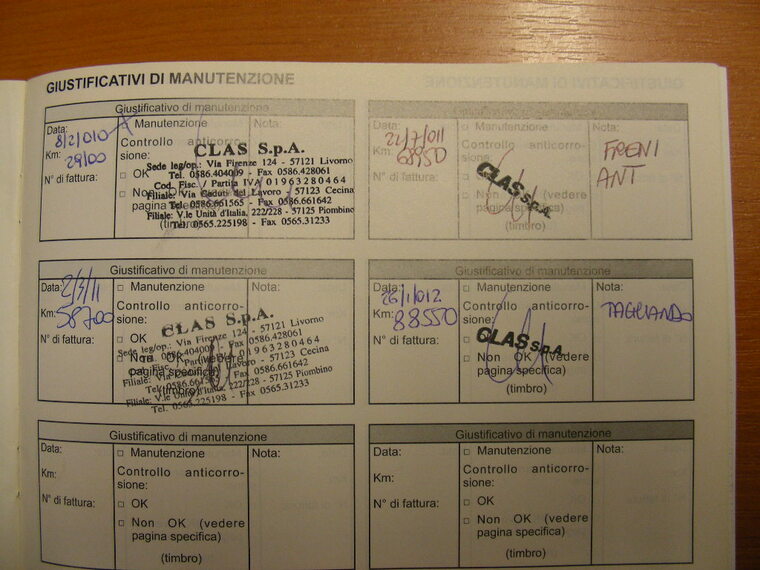 GIUSTIFICATIVI DI MANUTENZIONE
Giustificativo di manutenzione
Data: 8/2/010
Km: 29100
N° di fattura:
Manutenzione
Controllo anticorro-
sione:
OK
Non OK (vedere
pagina specifica)
(timbro)
Nota:
CLAS S.p.A.
Sede leg/op.: Via Firenze 124 - 57121 Livorno
Tel. 0586.404009 - Fax 0586.428061
Cod. Fisc. / Partita IVA 01963280464
Filiale: Via Caduti del Lavoro - 57123 Cecina
Tel. 0586.661565 - Fax 0586.661642
Filiale: V.le Unità d'Italia, 222/228 - 57125 Piombino
Tel. 0565.225198 - Fax 0565.31233
Giustificativo di manutenzione
Data:
Km: 68950
N° di fattura:
Manutenzione
Controllo anticorro-
sione:
OK
Non OK (vedere
pagina specifica)
(timbro)
Nota:
FRENI
ANT
CLAS S.p.A.
Giustificativo di manutenzione
Data: 2/3/11
Km: 58700
N° di fattura:
Manutenzione
Controllo anticorro-
sione:
OK
Non OK (vedere
pagina specifica)
(timbro)
Nota:
CLAS S.p.A.
Sede leg/op.: Via Firenze 124 - 57121 Livorno
Tel. 0586.404009 - Fax 0586.428061
Cod. Fisc. / Partita IVA 01963280464
Filiale: Via Caduti del Lavoro - 57123 Cecina
Tel. 0586.661565 - Fax 0586.661642
Filiale: V.le Unità d'Italia, 222/228 - 57125 Piombino
Tel. 0565.225198 - Fax 0565.31233
Giustificativo di manutenzione
Data: 26/1/012
Km: 88550
N° di fattura:
Manutenzione
Controllo anticorro-
sione:
OK
Non OK (vedere
pagina specifica)
(timbro)
Nota:
TAGLIANDO
CLAS S.p.A.
Giustificativo di manutenzione
Data:
Km:
N° di fattura:
Manutenzione
Controllo anticorro-
sione:
OK
Non OK (vedere
pagina specifica)
(timbro)
Nota:
Giustificativo di manutenzione
Data:
Km:
N° di fattura:
Manutenzione
Controllo anticorro-
sione:
OK
Non OK (vedere
pagina specifica)
(timbro)
Nota: